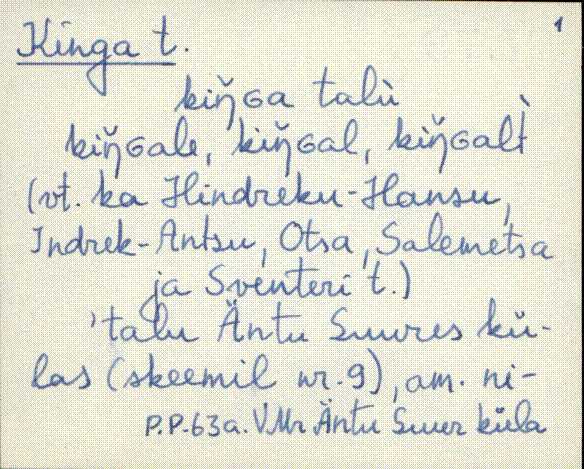 1
Kinga t.
kiŋ̆ɢa talù
kiŋ̆ɢale, kiŋ̆ɢal, kiŋ̆ɢalt̀
(vt. ka Hindreku-Hansu,
Indrek-Antsu, Otsa, Salemetsa
ja Sventeri t.)
'talu Äntu Suures kü-
las (skeemil nr. 9), am. ni-
P.P-63a. VMr Äntu Suur küla